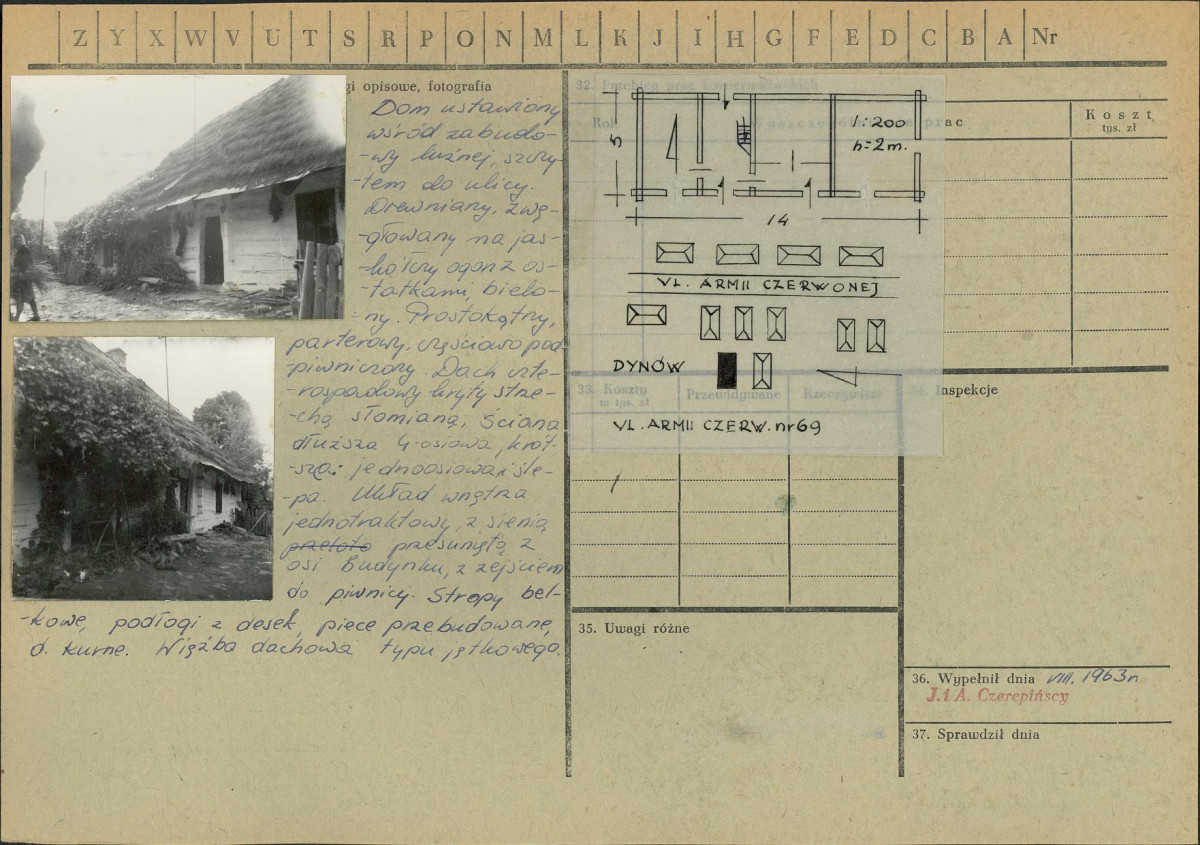 Z Y X W V U T S R P O N M L K J I H G F E D C B A Nr
gi opisowe, fotografia
Dom ustawiony
wśród zabudo-
-wy luźnej, szczy-
-tem do ulicy.
Drewniany, zwę-
-głowany na jas-
-kółczy ogon z os-
-tatkami, bielo-
-ny. Prostokątny,
parterowy, częściowo pod-
-piwniczony. Dach czte-
-rospadowy kryty strze-
-chą słomianą, Ściana
dłuższa 4-osiowa, krót-
-sza: jednoosiowa i śle-
-pa. Układ wnętrza
jednotraktowy, z sienią
przesuniętą z
osi budynku, z zejściem
do piwnicy. Stropy bel-
-kowe, podłogi z desek, piece przebudowane,
d. kurne. Więźba dachowa typu jętkowego.
32. Przebieg prac konserwatorskich
Rok
Wyszczególnienie prac
Koszt
tys. zł
1:200
h=2m.
5
14
UL. ARMII CZERWONEJ
DYNÓW
UL. ARMII CZERW. nr 69
33. Koszty
w tys. zł
Przewidywane
Rzeczywiste
34. Inspekcje
35. Uwagi różne
36. Wypełnił dnia VIII. 1963 r.
J. i A. Czerepińscy
37. Sprawdził dnia